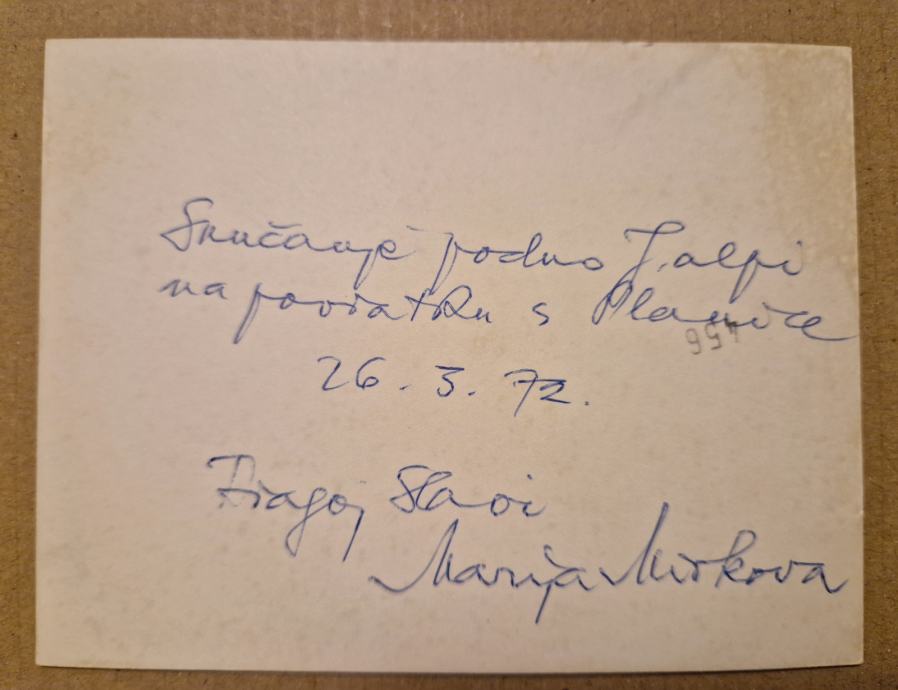 Sunčanje podno J. alpi
na povratku s Planice
456
26. 3. 72.
Dragoj Slavi
Marija Mirkova